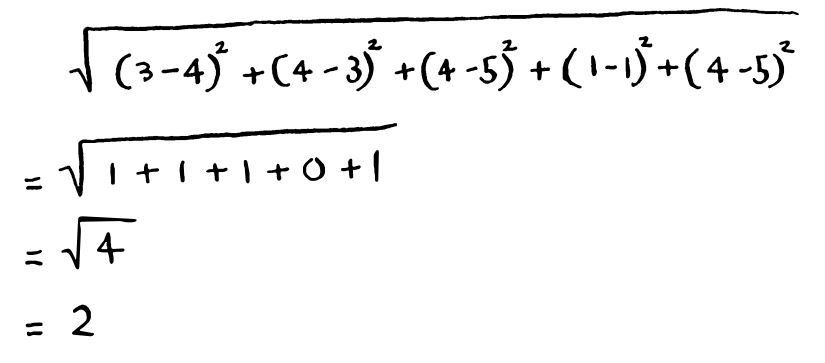 √((3-4)² + (4-3)² + (4-5)² + (1-1)² + (4-5)²)
= √(1 + 1 + 1 + 0 + 1)
= √4
= 2